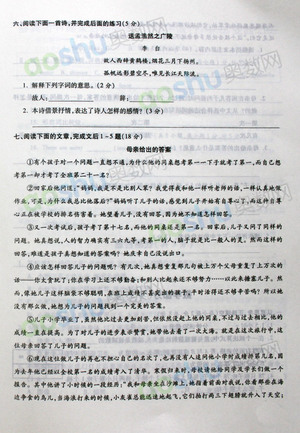 六、阅读下面一首诗,并完成后面的练习(5分)
送孟浩然之广陵
李 白
故人西辞黄鹤楼,烟花三月下扬州。
孤帆远影碧空尽,惟见长江天际流。
1. 解释下列字词的意思。(2分)
故人: 辞:
2. 本诗借景抒情,表达了诗人怎样的感情?(3分)
七、阅读下面的文章,完成文后1-5题(18分)
母亲给出的答案
①有个孩子对一个问题一直想不通,为什么他的同桌想考第一一下子就考了第一,而自己想
考第一却才考了全班第二十一名?
②回家后他问道:“妈妈,我是不是比别人笨?我觉得我和他一样听老师的话,一样认真地做
作业,可是,为什么我总比他落后?”妈妈听了儿子的话,感觉到儿子开始有自尊心了,而这种自尊
心正在被学校的排名伤害着。她望着儿子,没有回答,因为她不知道怎样回答。
③又一次考试后,孩子考了第十七名,而他的同桌还是第一名。回家后,儿子又问了同样的
问题。她真想说,人的智力确实有三六九等,考第一的人,脑子就是比一般人的灵。然而这样的
回答,难道是孩子真想知道的答案吗?她庆幸自己没说出口。
④应该怎样回答儿子的问题呢?有几次,她真想重复那几句被上万个父母重复了上万次的
话——你太贪玩了;你在学习上还不够勤奋;和别人比起来还不够努力……以此来搪塞儿子。然
而,像她儿子这样脑袋不够聪明,在班上成绩不甚突出的孩子,平时活得还不够辛苦吗?所以她
没有那么做,她想为儿子的问题找到一个完美的答案。
⑤儿子小学毕业了,虽然他比过去更加刻苦,但依然没赶上他的同桌,不过与过去相比,他的
成绩一直在提高。为了对儿子的进步表示赞赏,她带他去看了一次大海。就是在这次旅行中,这
位母亲回答了儿子的问题。
⑥现在这位做儿子的再也不担心自己的名次了,也再没有人追问他小学时成绩排第几名,因
为去年他已经以全校第一名的成绩考入了清华。寒假归来时,母校请他给同学及家长们做一个
报告。其中他讲了小时候的一段经历:“我和母亲坐在沙滩上,她指着前面对我说,你看那些在海
边争食的鸟儿,当海浪打来的时候,小灰雀总能迅速地起飞,它们拍打两三下翅膀就升入了天空;